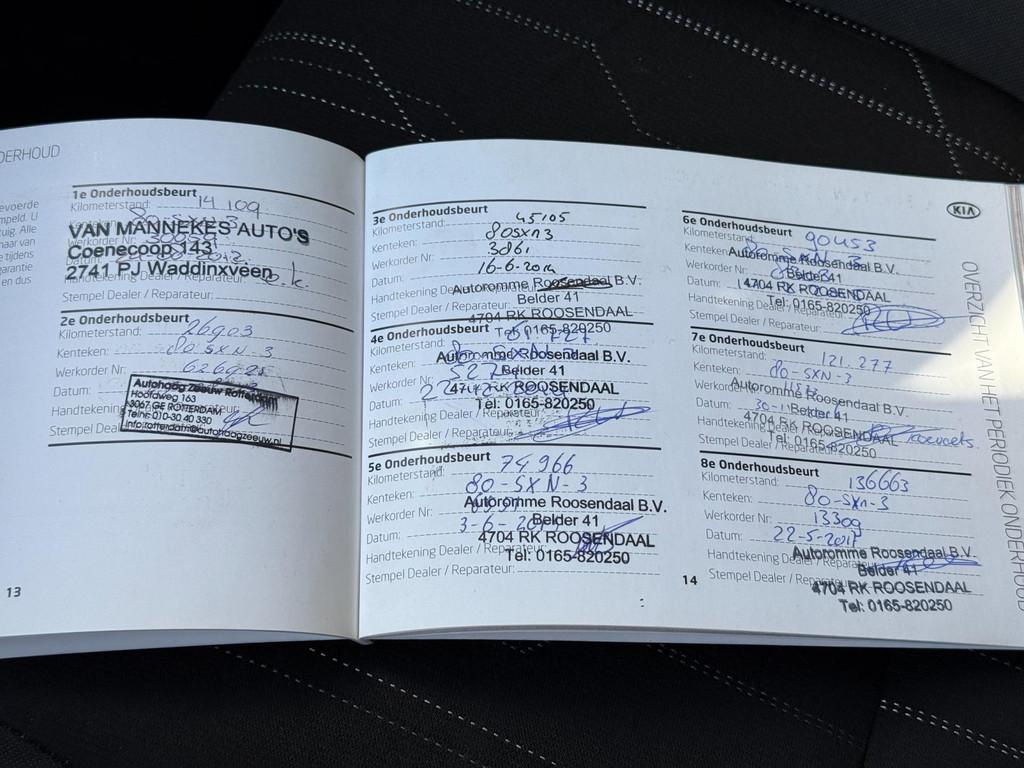 DERHOUD
evoerde
mpeld. U
tuig. Alle
naar van
e tijdens
garantie
en dus
1e Onderhoudsbeurt
Kilometerstand: 14 109
Kenteken: 80-SXN-3
VAN MANNEKES AUTO'S
Werkorder Nr:
Coenecoop 143
Datum:
2741 PJ Waddinxveen
Handtekening Dealer / Reparateur: o.k.
Stempel Dealer / Reparateur:
2e Onderhoudsbeurt
Kilometerstand: 26903
Kenteken: 80 SXN-3
Werkorder Nr:
Datum:
Autohaag Zeeuw Rotterdam
Hoofdweg 163
3067 GE ROTTERDAM
Telnr. 010-30 40 330
info.rotterdam@autohaagzeeuw.nl
Handtekening
Stempel Deal
13
3e Onderhoudsbeurt
Kilometerstand: 45105
Kenteken: 80sxn3
Werkorder Nr: 3861
Datum: 16-6-2014
Handtekening De
Autoromme Roosendaal B.V.
Belder 41
Stempel Dealer / Reparateur:
4704 RK ROOSENDAAL
Tel: 0165-820250
4e Onderhoudsbeurt
Kilometerstand:
Kenteken:
Autoromme Roosendaal B.V.
Werkorder Nr:
Belder 41
Datum:
4704 RK ROOSENDAAL
Tel: 0165-820250
Handtekening Dealer / Reparateur:
Stempel Dealer / Reparateur:
5e Onderhoudsbeurt
Kilometerstand: 74966
Kenteken: 80-SXN-3
Autoromme Roosendaal B.V.
Werkorder Nr:
Belder 41
Datum: 3-6-201
4704 RK ROOSENDAAL
Handtekening Dealer / Reparateur:
Tel: 0165-820250
Stempel Dealer / Reparateur:
KIA
6e Onderhoudsbeurt
Kilometerstand: 90453
Kenteken:
Autoromme Roosendaal B.V.
Werkorder Nr:
Belder 41
Datum:
4704 RK ROOSENDAAL
Handtekening Dealer / Reparateur:
Tel: 0165-820250
Stempel Dealer / Reparateur:
7e Onderhoudsbeurt
Kilometerstand: 121.277
Kenteken: 80-SXN-3
Werkorder
Autoromme Roosendaal B.V.
Datum: 30-1
Belder 41
Handtekening
4704 RK ROOSENDAAL
Tel: 0165-820250
Stempel Dealer / Reparateur:
8e Onderhoudsbeurt
Kilometerstand: 136663
Kenteken: 80-SXn-3
Werkorder Nr: 13309
Datum: 22-5-201
Handtekening Dealer / Reparateur:
Autoromme Roosendaal B.V.
Belder 41
Stempel Dealer / Reparateur:
4704 RK ROOSENDAAL
Tel: 0165-820250
14
OVERZICHT VAN HET PERIODIEK ONDERHOUD